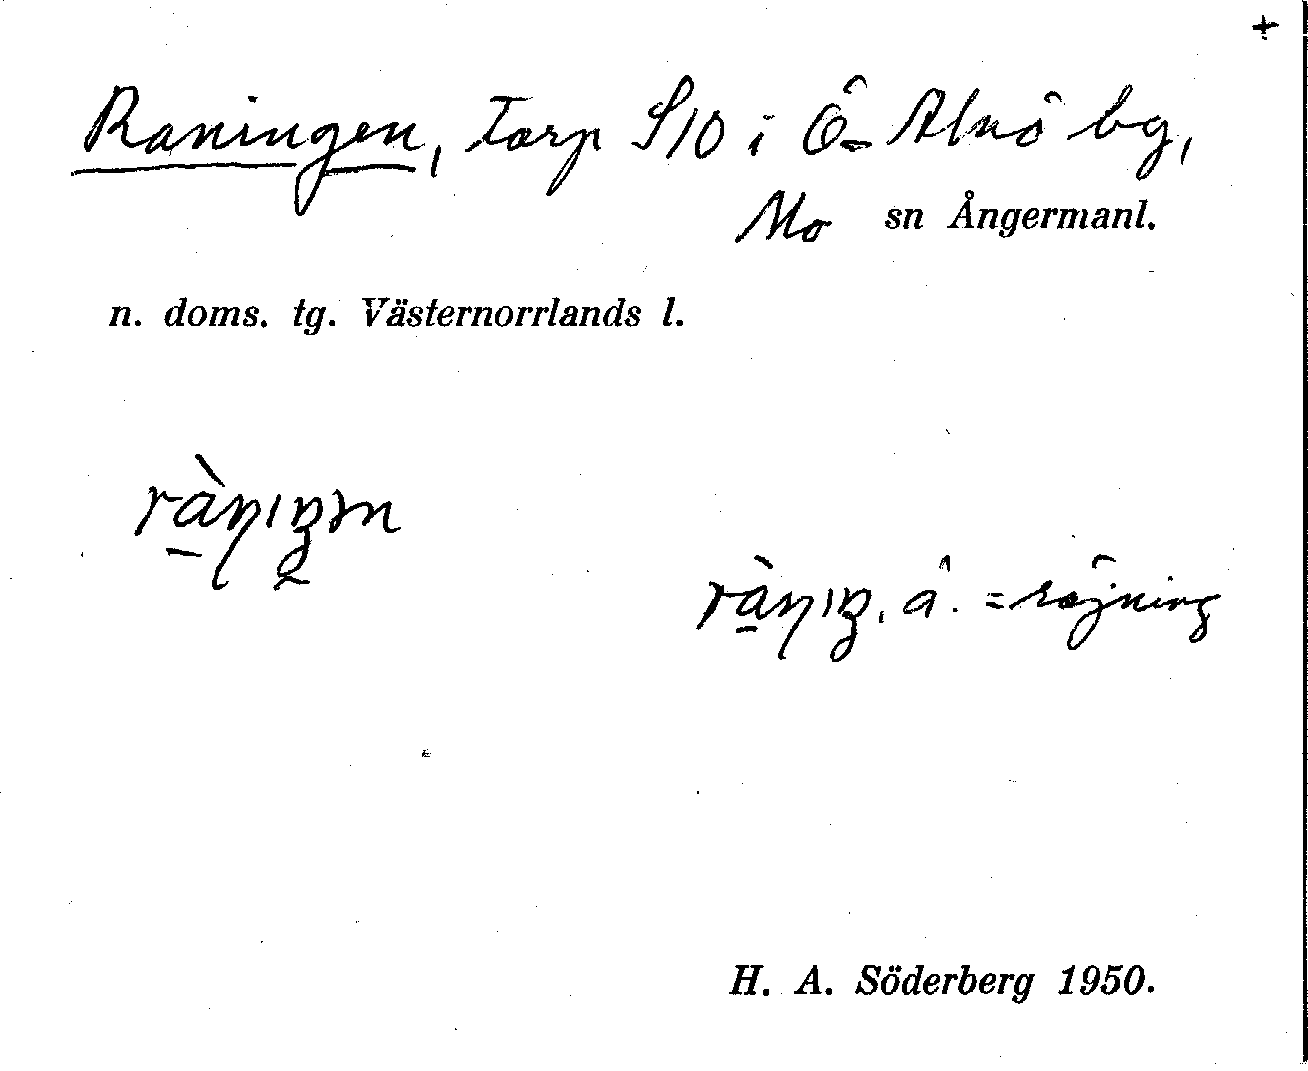 +
Raningen, torp S10 i Ö-Alnö bg,
Mo sn Ångermanl.
n. doms. tg. Västernorrlands l.
= röjning
H. A. Söderberg 1950.